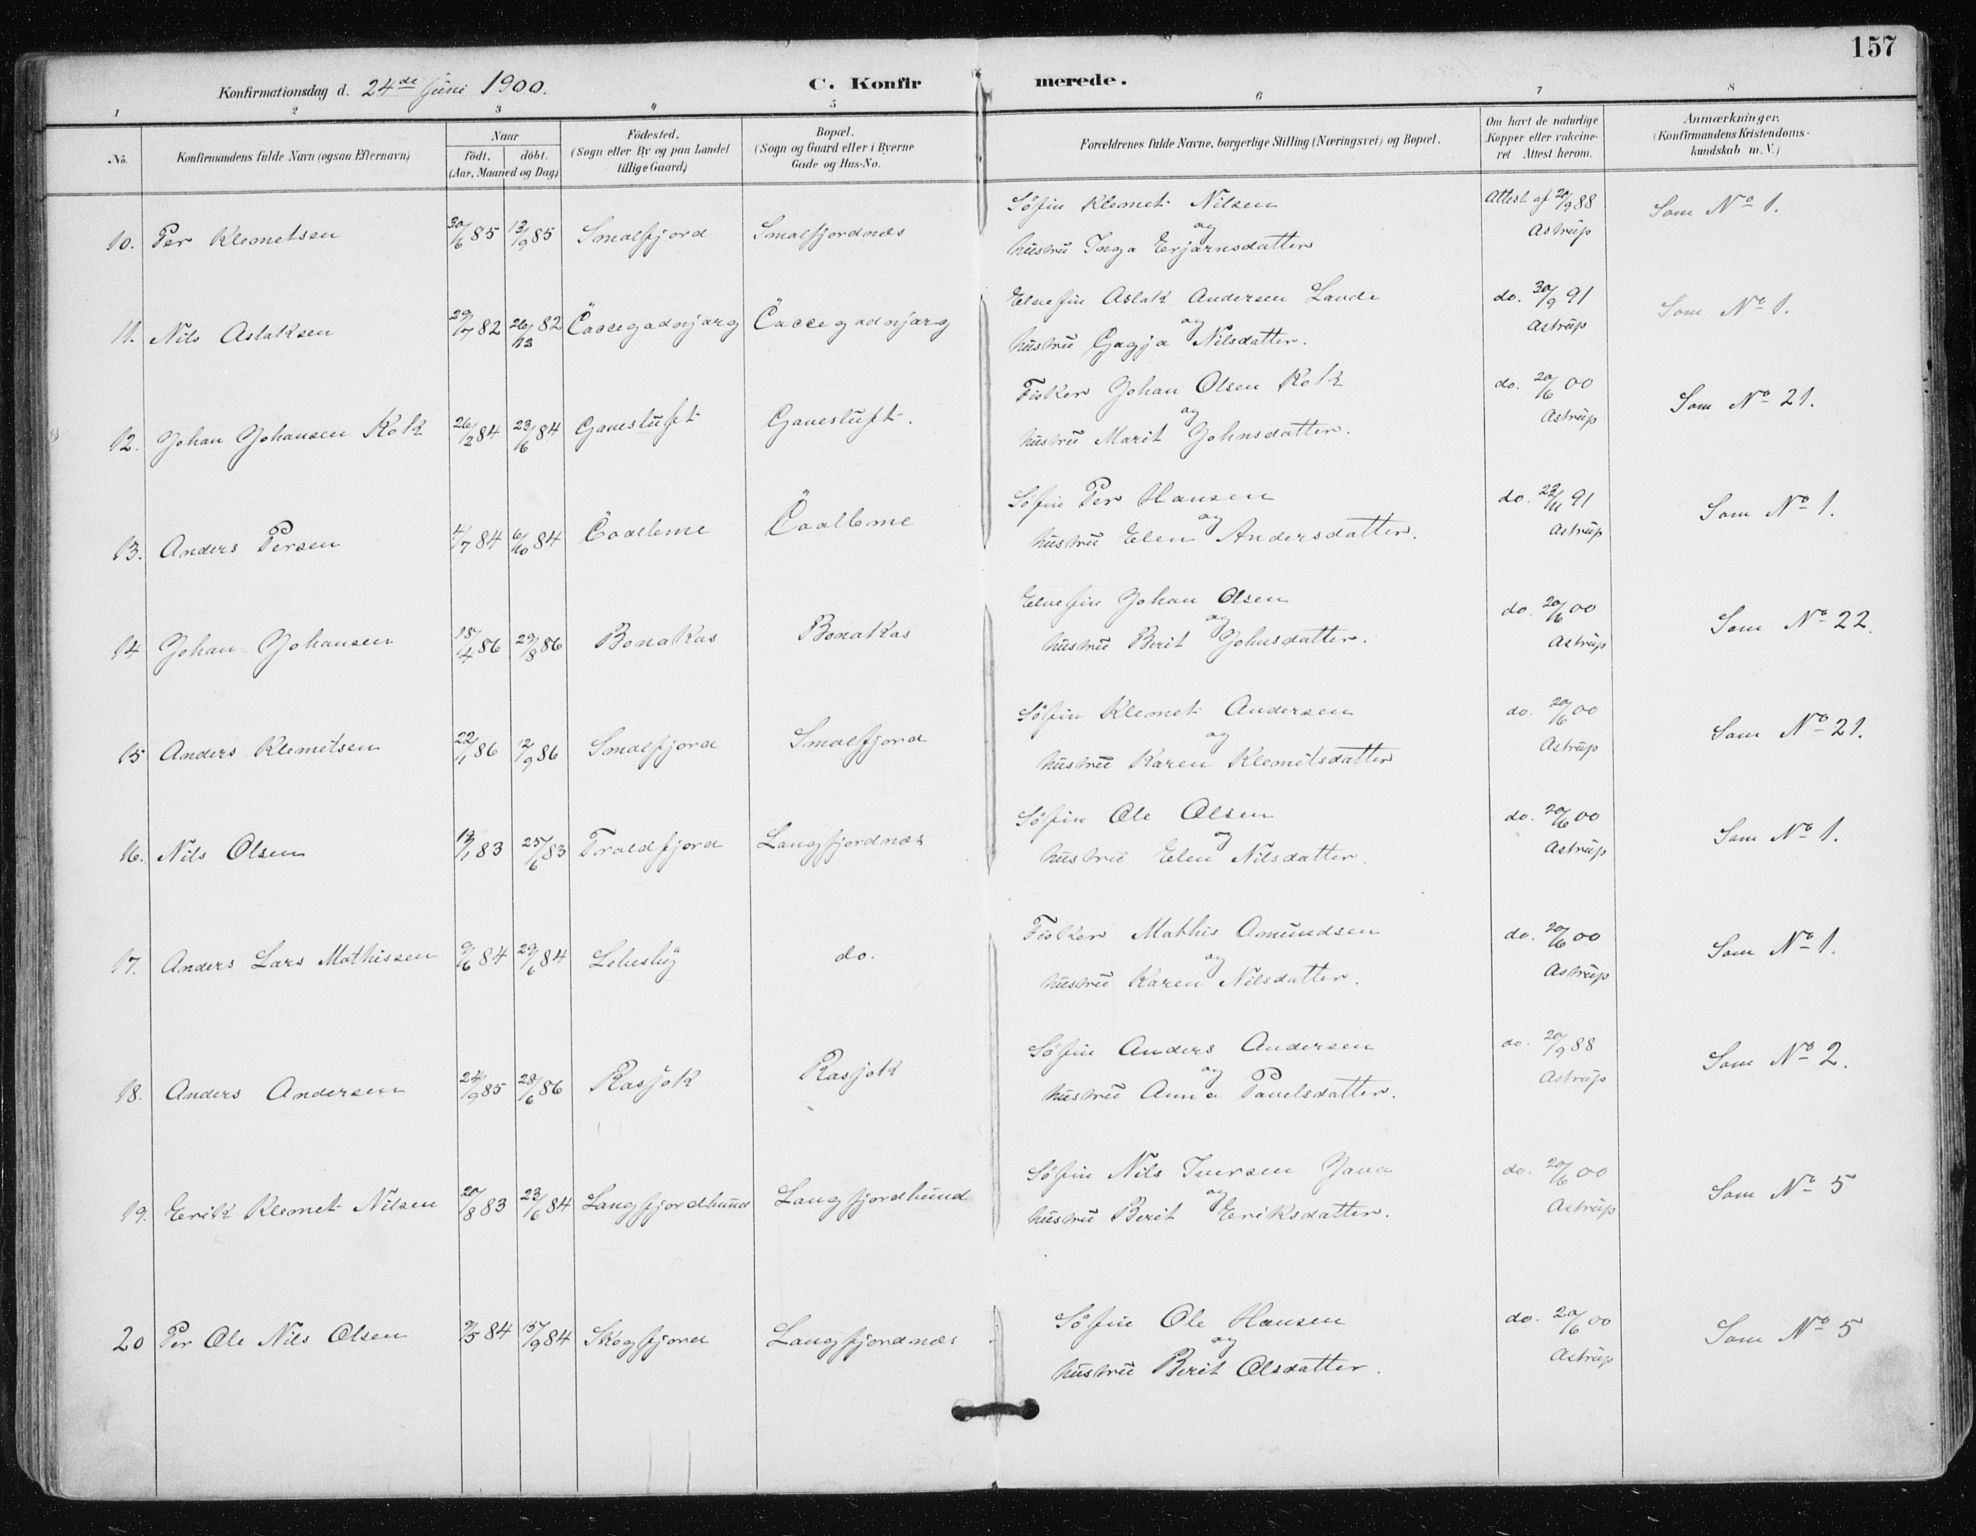 157
Konfirmationsdag d. 24de Juni 1900. C. Konfirmerede.
1 2 3 4 5 6 7 8
No. Konfirmandens fulde Navn (ogsaa Efternavn) Naar födt. döbt. (Aar, Maaned og Dag) Födested. (Sogn eller By og paa Landet tillige Gaard) Bopæl. (Sogn og Gaard eller i Byerne Gade og Hus-No. Forældrenes fulde Navne, borgerlige Stilling (Næringsvei) og Bopæl. Om havt de naturlige Kopper eller vakcineret. Attest herom. Anmærkninger. (Konfirmandens Kristendomskundskab m. V.)
10. Per Klemetsen 30/6 85 13/9 85 Smalfjord Smalfjordnæs Söfin Klemet Nilsen og Attest af 20/9 88 Som No 1.
hustru Inga Erjarnsdatter Astrup
11. Nils Aslaksen 29/7 82 26/12 82 Čaccegadnjarg Čaccegadnjarg Elvefin Aslak Andersen Lande og do. 30/9 91 Som No 1.
hustru Gagja Nilsdatter. Astrup
12. Johan Johansen Kolk 26/2 84 23/6 84 Gavesluft Gavesluft. Fisker Johan Olsen Kolk og do. 20/6 00 Som No 21.
hustru Marit Johnsdatter. Astrup
13. Anders Persen 4/7 84 6/10 84 Čoalleme Čoalleme Söfin Per Hansen og do. 22/11 91 Som No 1.
hustru Elen Andersdatter. Astrup
14 Johan Johansen 15/4 86 29/8 86 Bonakas Bonakas Elvefin Johan Olsen og do. 20/6 00 Som No 22.
hustru Berit Johnsdatter. Astrup
15 Anders Klemetsen 22/1 86 12/9 86 Smalfjord Smalfjord Söfin Klemet Andersen og do. 20/6 00 Som No 21.
hustru Karen Klemetsdatter Astrup
16. Nils Olsen 19/1 83 25/6 83 Troldfjord Langfjordnæs Söfin Ole Olsen og do. 20/6 00 Som No 1.
hustru Elen Nilsdatter. Astrup
17. Anders Lars Mathissen 9/6 84 29/6 84 Lebesby do. Fisker Mathis Amundsen og do. 20/6 00 Som No 1.
hustru Karen Nilsdatter. Astrup
18. Anders Andersen 24/9 85 28/6 86 Rasjok Rasjok Söfin Anders Andersen og do. 20/9 88 Som No 2.
hustru Anna Pauelsdatter. Astrup
19. Erik Klemet Nilsen 20/8 83 23/6 84 Langfjordbund Langfjordbund Söfin Nils Iversen Java og do. 20/6 00 Som No 5
hustru Berit Eriksdatter. Astrup
20 Per Ole Nils Olsen 9/5 84 15/9 84 Skogfjord Langfjordnæs Söfin Ole Hansen og do. 20/6 00 Som No 5
hustru Berit Olsdatter. Astrup